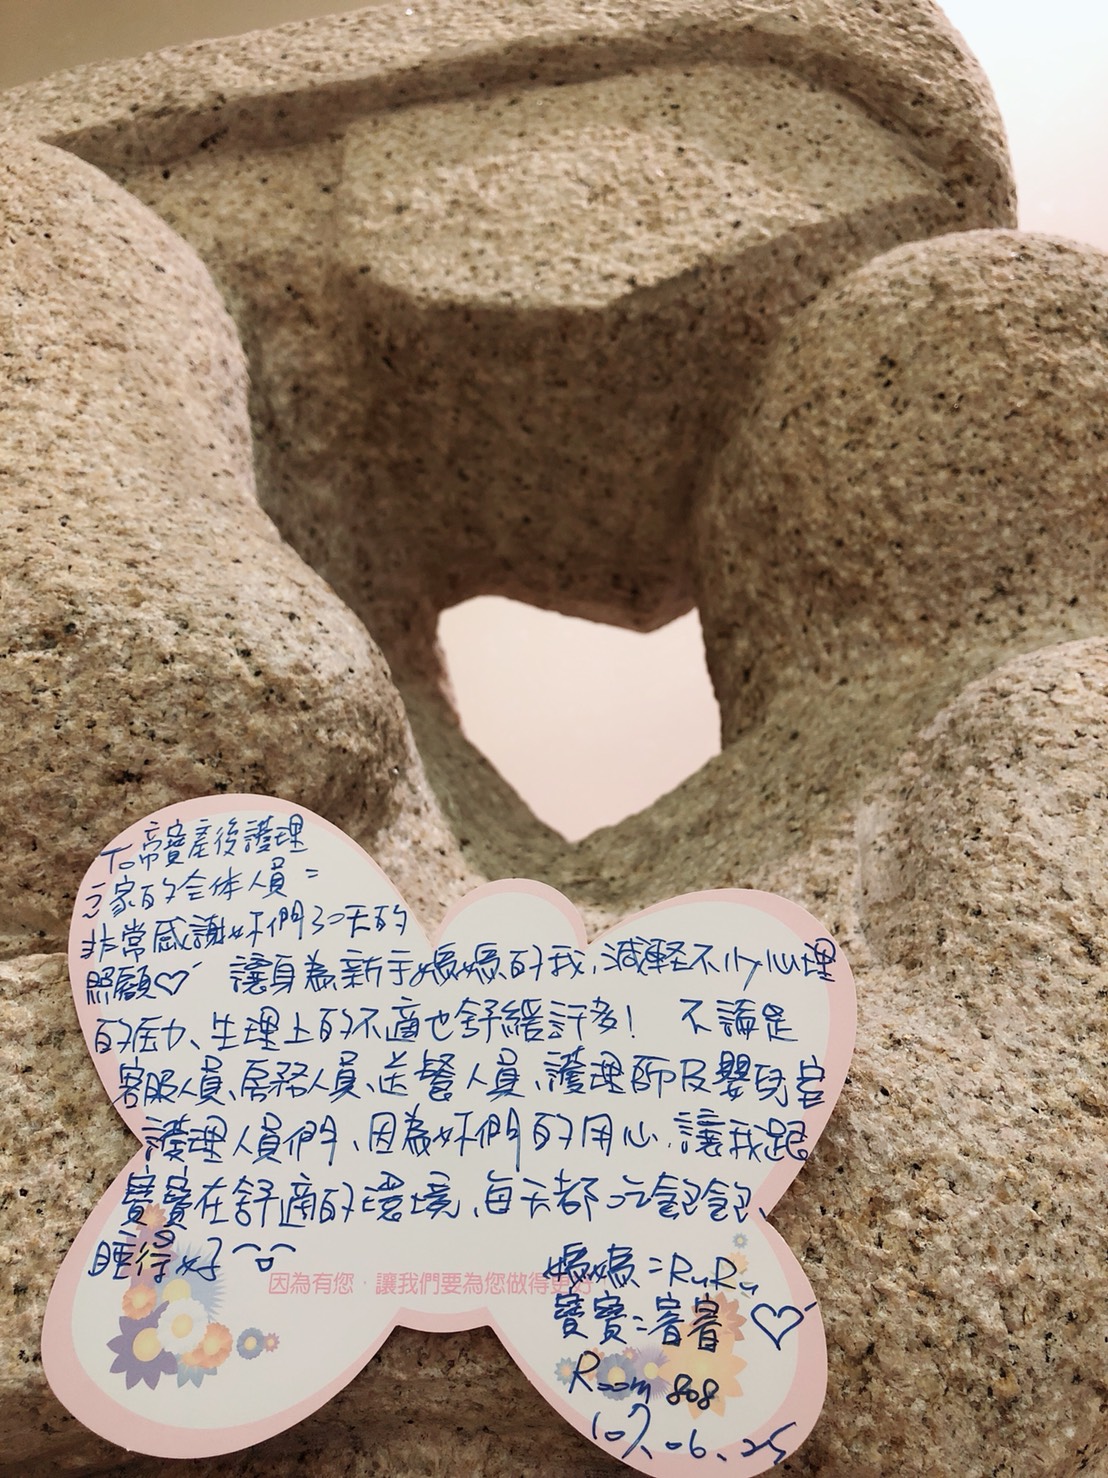 To帝寶產後護理
之家的全体人員：
非常感謝妳們30天的
照顧♡ 讓身為新手媽媽的我，減輕不少心理
的壓力、生理上的不適也舒緩許多！ 不論是
客服人員、房務人員、送餐人員、護理師及嬰兒室
護理人員們、因為妳們的用心，讓我跟
寶寶在舒適的環境，每天都吃飽飽、
睡得好
因為有您，讓我們要為您做得更好
媽媽：RuRu
寶寶：睿睿♡
Room 808
107.06.25